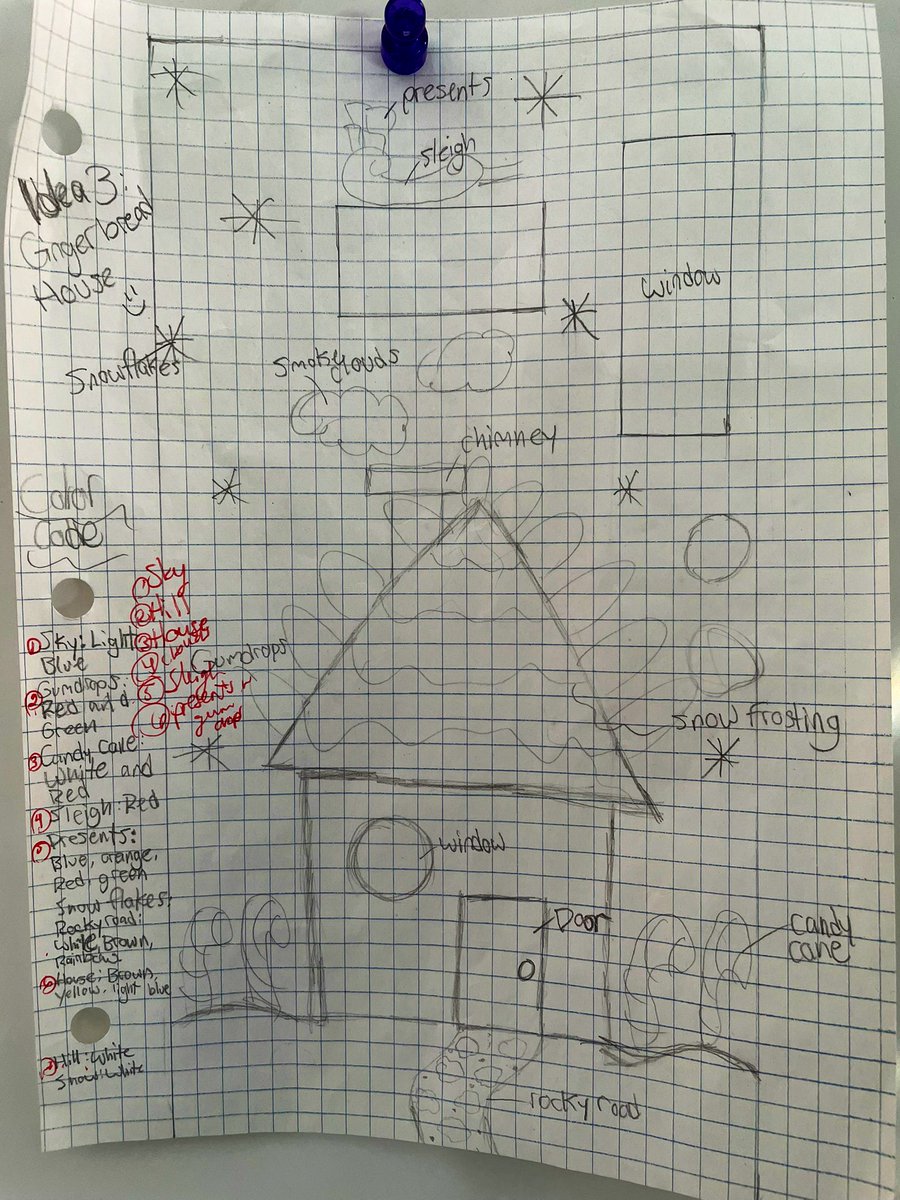 presents
sleigh
Idea 3:
Gingerbread
House
window
Snowflakes
Smoky clouds
chimney
Color
Code
① Sky
② Hill
③ House
④ clouds
⑤ Sleigh
⑥ presents n
gum
drop
① Sky: Light
Blue
② Gumdrops:
Red and
Green
③ Candy Cane:
White and
Red
④ Sleigh: Red
⑤ Presents:
Blue, orange,
Red, green
Snow flakes:
Rocky road:
White, Brown,
Rainbow
⑥ House: Brown,
yellow, light blue
Hill: White
Snow: White
Gumdrops
snow frosting
window
Door
candy
cane
rocky road